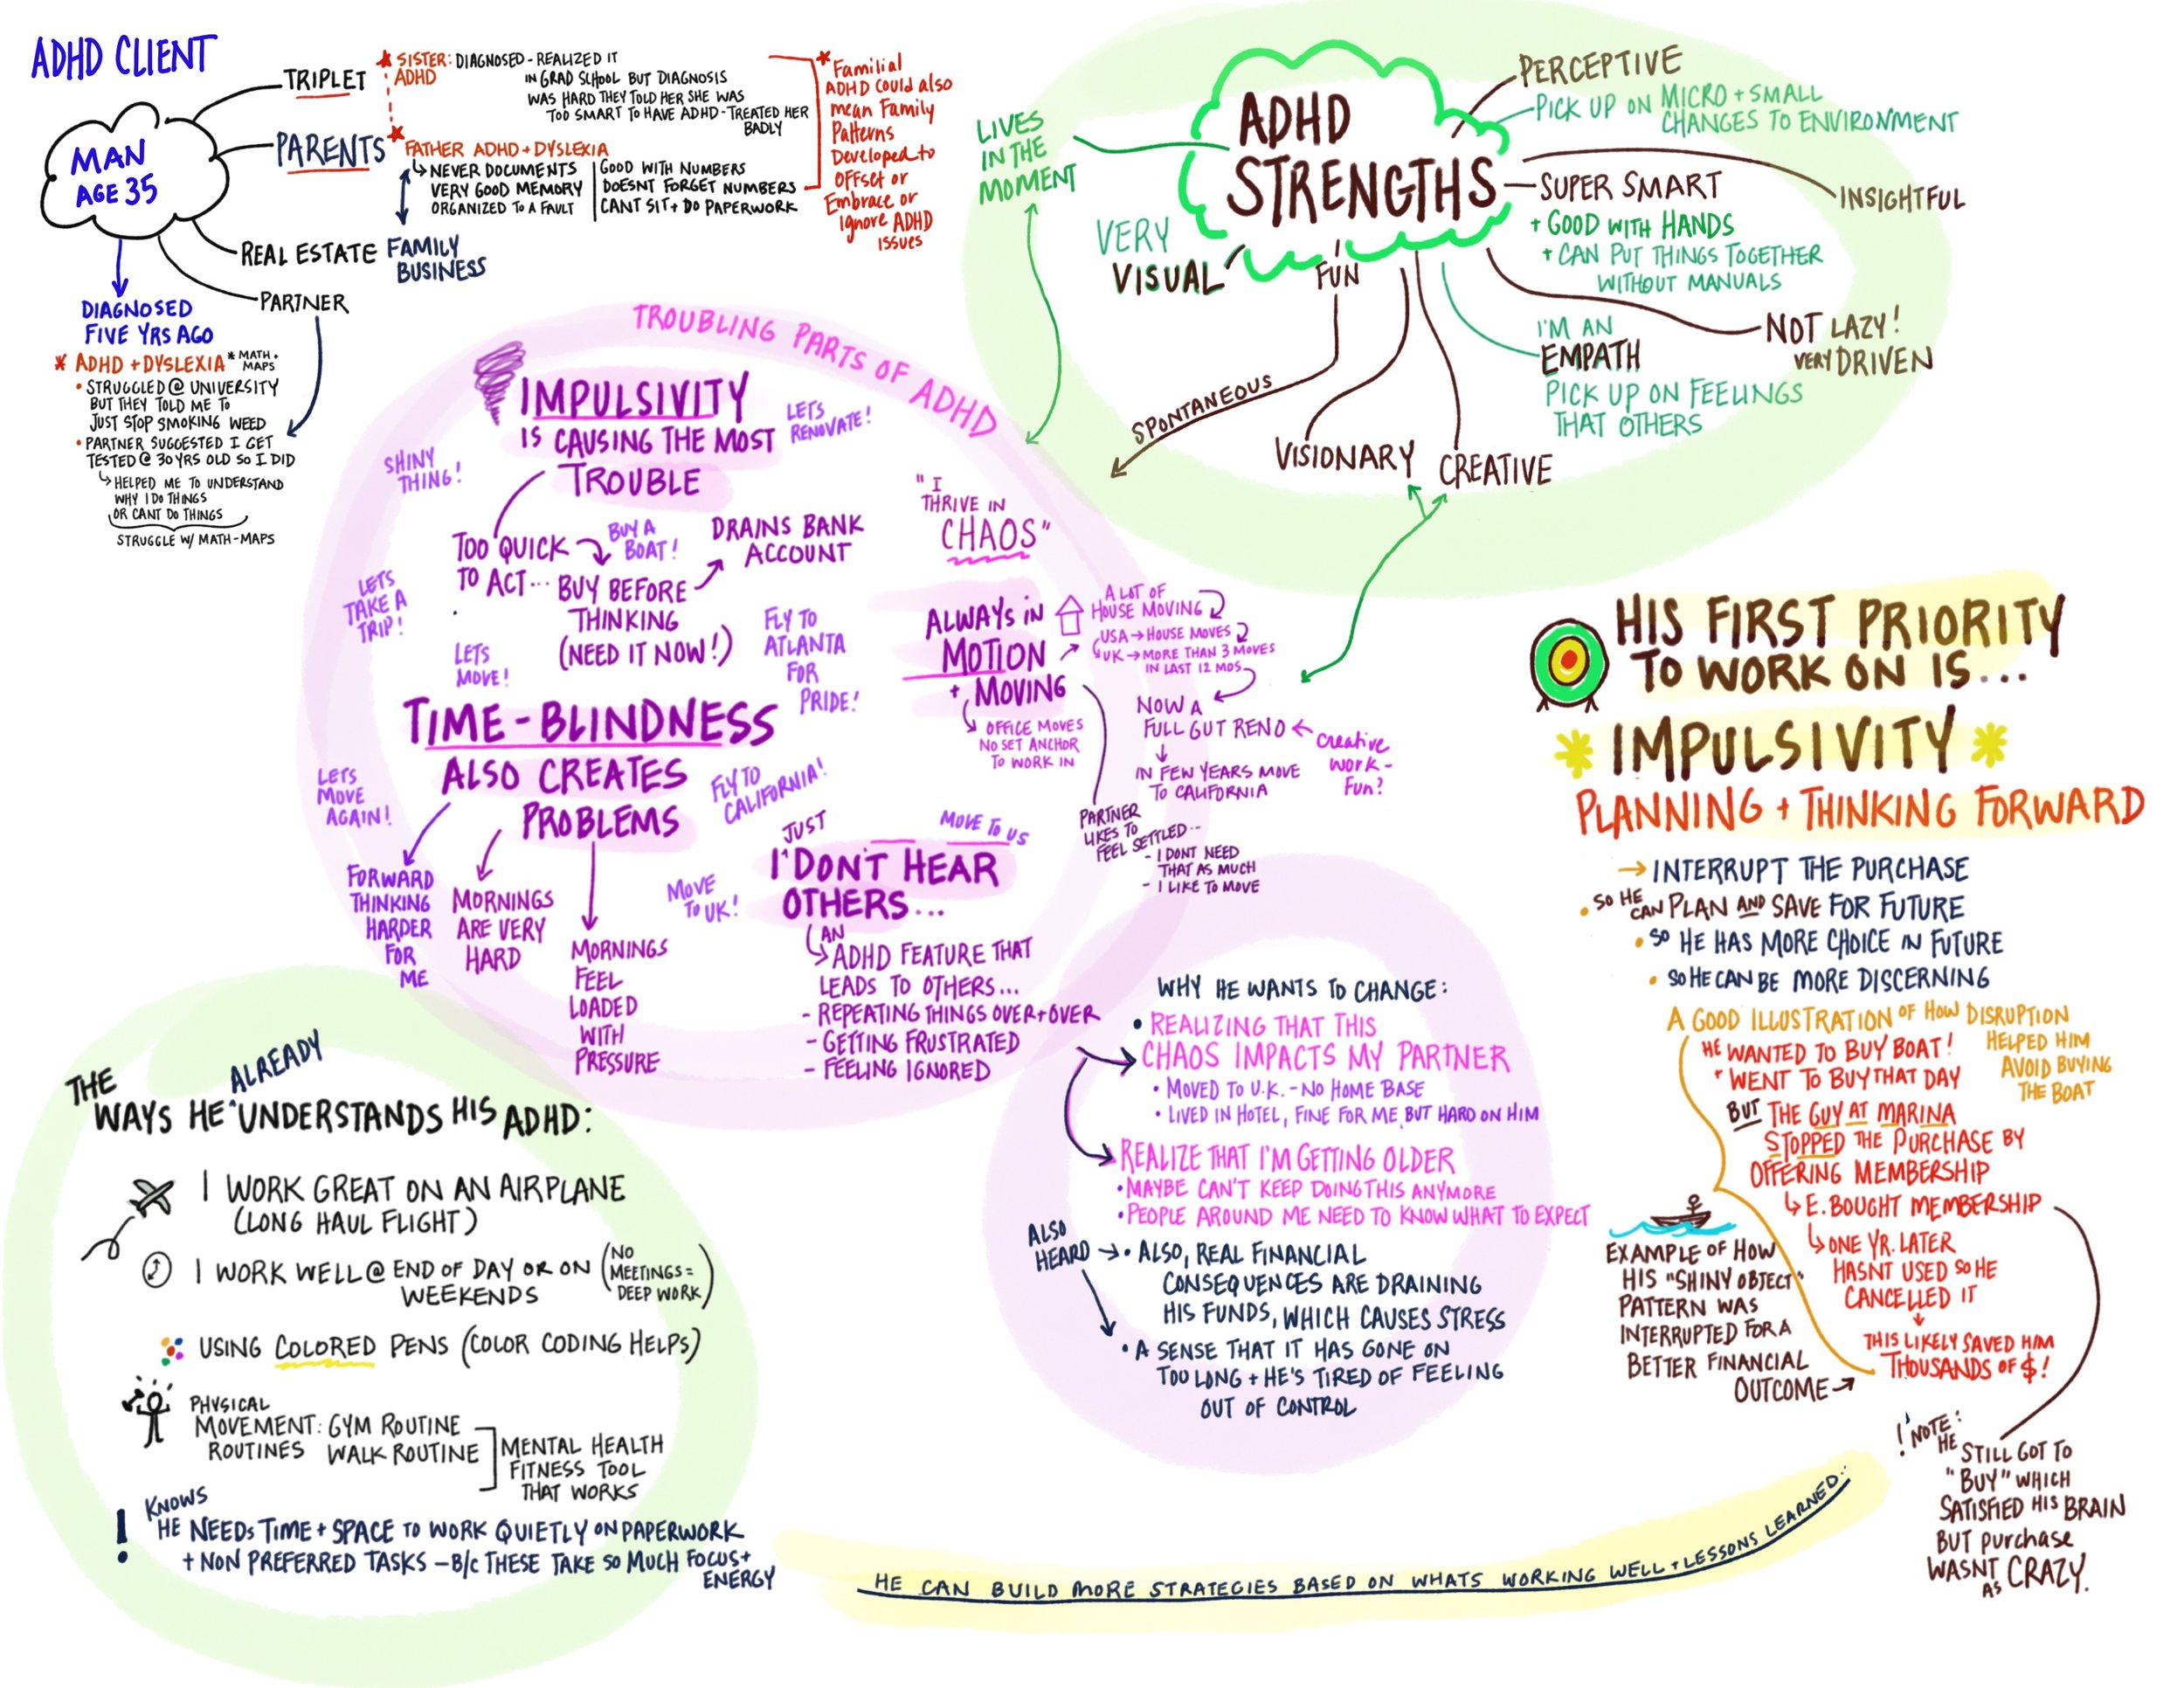 ADHD CLIENT
MAN
AGE 35
TRIPLET
SISTER: DIAGNOSED - REALIZED IT
ADHD
IN GRAD SCHOOL BUT DIAGNOSIS
WAS HARD THEY TOLD HER SHE WAS
TOO SMART TO HAVE ADHD - TREATED HER
BADLY
PARENTS
FATHER ADHD + DYSLEXIA
NEVER DOCUMENTS
VERY GOOD MEMORY
ORGANIZED TO A FAULT
GOOD WITH NUMBERS
DOESNT FORGET NUMBERS
CANT SIT + DO PAPERWORK
* Familial
ADHD could also
mean Family
Patterns
Developed to
Offset or
Embrace or
Ignore ADHD
issues
REAL ESTATE FAMILY
BUSINESS
PARTNER
DIAGNOSED
FIVE YRS AGO
* ADHD + DYSLEXIA * MATH +
MAPS
• STRUGGLED @ UNIVERSITY
BUT THEY TOLD ME TO
JUST STOP SMOKING WEED
• PARTNER SUGGESTED I GET
TESTED @ 30 YRS OLD SO I DID
HELPED ME TO UNDERSTAND
WHY I DO THINGS
OR CANT DO THINGS
STRUGGLE W/ MATH-MAPS
ADHD
STRENGTHS
LIVES
IN THE
MOMENT
VERY
VISUAL
FUN
SPONTANEOUS
VISIONARY
CREATIVE
PERCEPTIVE
- PICK UP ON MICRO + SMALL
CHANGES TO ENVIRONMENT
INSIGHTFUL
SUPER SMART
+ GOOD WITH HANDS
+ CAN PUT THINGS TOGETHER
WITHOUT MANUALS
NOT LAZY!
VERY DRIVEN
I'M AN
EMPATH
PICK UP ON FEELINGS
THAT OTHERS
TROUBLING PARTS OF ADHD
IMPULSIVITY
IS CAUSING THE MOST
TROUBLE
LETS
RENOVATE!
SHINY
THING!
TOO QUICK
TO ACT...
BUY A
BOAT!
BUY BEFORE
THINKING
(NEED IT NOW!)
DRAINS BANK
ACCOUNT
LETS
TAKE A
TRIP!
LETS
MOVE!
FLY TO
ATLANTA
FOR
PRIDE!
TIME-BLINDNESS
ALSO CREATES
PROBLEMS
LETS
MOVE
AGAIN!
FLY TO
CALIFORNIA!
FORWARD
THINKING
HARDER
FOR
ME
MORNINGS
ARE VERY
HARD
MORNINGS
FEEL
LOADED
WITH
PRESSURE
MOVE
TO UK!
MOVE TO US
JUST
I DON'T HEAR
OTHERS...
AN
ADHD FEATURE THAT
LEADS TO OTHERS...
- REPEATING THINGS OVER + OVER
- GETTING FRUSTRATED
- FEELING IGNORED
"I
THRIVE IN
CHAOS"
ALWAYS IN
MOTION
+ MOVING
OFFICE MOVES
NO SET ANCHOR
TO WORK IN
A LOT OF
HOUSE MOVING
USA → HOUSE MOVES
UK → MORE THAN 3 MOVES
IN LAST 12 MOS
NOW A
FULL GUT RENO
creative
work -
Fun?
IN FEW YEARS MOVE
TO CALIFORNIA
PARTNER
LIKES TO
FEEL SETTLED...
- I DONT NEED
THAT AS MUCH
- I LIKE TO MOVE
WHY HE WANTS TO CHANGE:
• REALIZING THAT THIS
CHAOS IMPACTS MY PARTNER
• MOVED TO U.K. - NO HOME BASE
• LIVED IN HOTEL, FINE FOR ME, BUT HARD ON HIM
REALIZE THAT I'M GETTING OLDER
• MAYBE CAN'T KEEP DOING THIS ANYMORE
• PEOPLE AROUND ME NEED TO KNOW WHAT TO EXPECT
ALSO
HEARD → • ALSO, REAL FINANCIAL
CONSEQUENCES ARE DRAINING
HIS FUNDS, WHICH CAUSES STRESS
• A SENSE THAT IT HAS GONE ON
TOO LONG + HE'S TIRED OF FEELING
OUT OF CONTROL
HIS FIRST PRIORITY
TO WORK ON IS...
* IMPULSIVITY *
PLANNING + THINKING FORWARD
→ INTERRUPT THE PURCHASE
• SO HE CAN PLAN AND SAVE FOR FUTURE
• SO HE HAS MORE CHOICE IN FUTURE
• SO HE CAN BE MORE DISCERNING
A GOOD ILLUSTRATION OF HOW DISRUPTION
HELPED HIM
AVOID BUYING
THE BOAT
HE WANTED TO BUY BOAT!
+ WENT TO BUY THAT DAY
BUT THE GUY AT MARINA
STOPPED THE PURCHASE BY
OFFERING MEMBERSHIP
E. BOUGHT MEMBERSHIP
ONE YR. LATER
HASNT USED SO HE
CANCELLED IT
THIS LIKELY SAVED HIM
THOUSANDS OF $!
EXAMPLE OF HOW
HIS "SHINY OBJECT"
PATTERN WAS
INTERRUPTED FOR A
BETTER FINANCIAL
OUTCOME →
! NOTE:
HE STILL GOT TO
"BUY" WHICH
SATISFIED HIS BRAIN
BUT purchase
WASNT AS CRAZY.
THE
WAYS HE ALREADY UNDERSTANDS HIS ADHD:
I WORK GREAT ON AN AIRPLANE
(LONG HAUL FLIGHT)
I WORK WELL @ END OF DAY OR ON
WEEKENDS
(NO
MEETINGS =
DEEP WORK)
USING COLORED PENS (COLOR CODING HELPS)
PHYSICAL
MOVEMENT: GYM ROUTINE
ROUTINES WALK ROUTINE
MENTAL HEALTH
FITNESS TOOL
THAT WORKS
! KNOWS
HE NEEDS TIME + SPACE TO WORK QUIETLY ON PAPERWORK
+ NON PREFERRED TASKS - B/C THESE TAKE SO MUCH FOCUS +
ENERGY
HE CAN BUILD MORE STRATEGIES BASED ON WHATS WORKING WELL + LESSONS LEARNED..